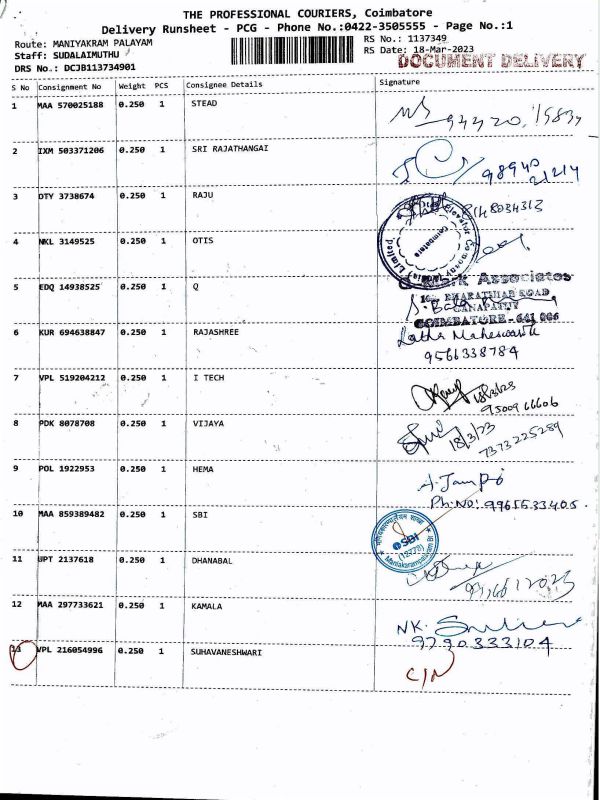 THE PROFESSIONAL COURIERS, Coimbatore
Delivery Runsheet - PCG - Phone No.:0422-3505555 - Page No.:1
Route: MANIYAKRAM PALAYAM
RS No.: 1137349
Staff: SUDALAIMUTHU
RS Date: 18-Mar-2023
DRS No.: DCJB113734901
DOCUMENT DELIVERY
S No Consignment No Weight PCS Consignee Details Signature
1 MAA 570025188 0.250 1 STEAD
2 IXM 503371206 0.250 1 SRI RAJATHANGAI
98940
21214
3 DTY 3738674 0.250 1 RAJU
4 NKL 3149525 0.250 1 OTIS
Coimbatore
5 EDQ 14938525 0.250 1 Q
Associates
BHARATHIAR ROAD
GANAPATHY
COIMBATORE - 641 006
6 KUR 694638847 0.250 1 RAJASHREE
Latha Maheswari
9566338784
7 VPL 519204212 0.250 1 I TECH
18/3/23
9500966606
8 PDK 8078708 0.250 1 VIJAYA
18/3/23
7373225289
9 POL 1922953 0.250 1 HEMA
Ph.No: 9965533405
10 MAA 859389482 0.250 1 SBI
SBI
(12773)
11 UPT 2137618 0.250 1 DHANABAL
12 MAA 297733621 0.250 1 KAMALA
NK.
9790333104
13 VPL 216054996 0.250 1 SUHAVANESHWARI
C/N